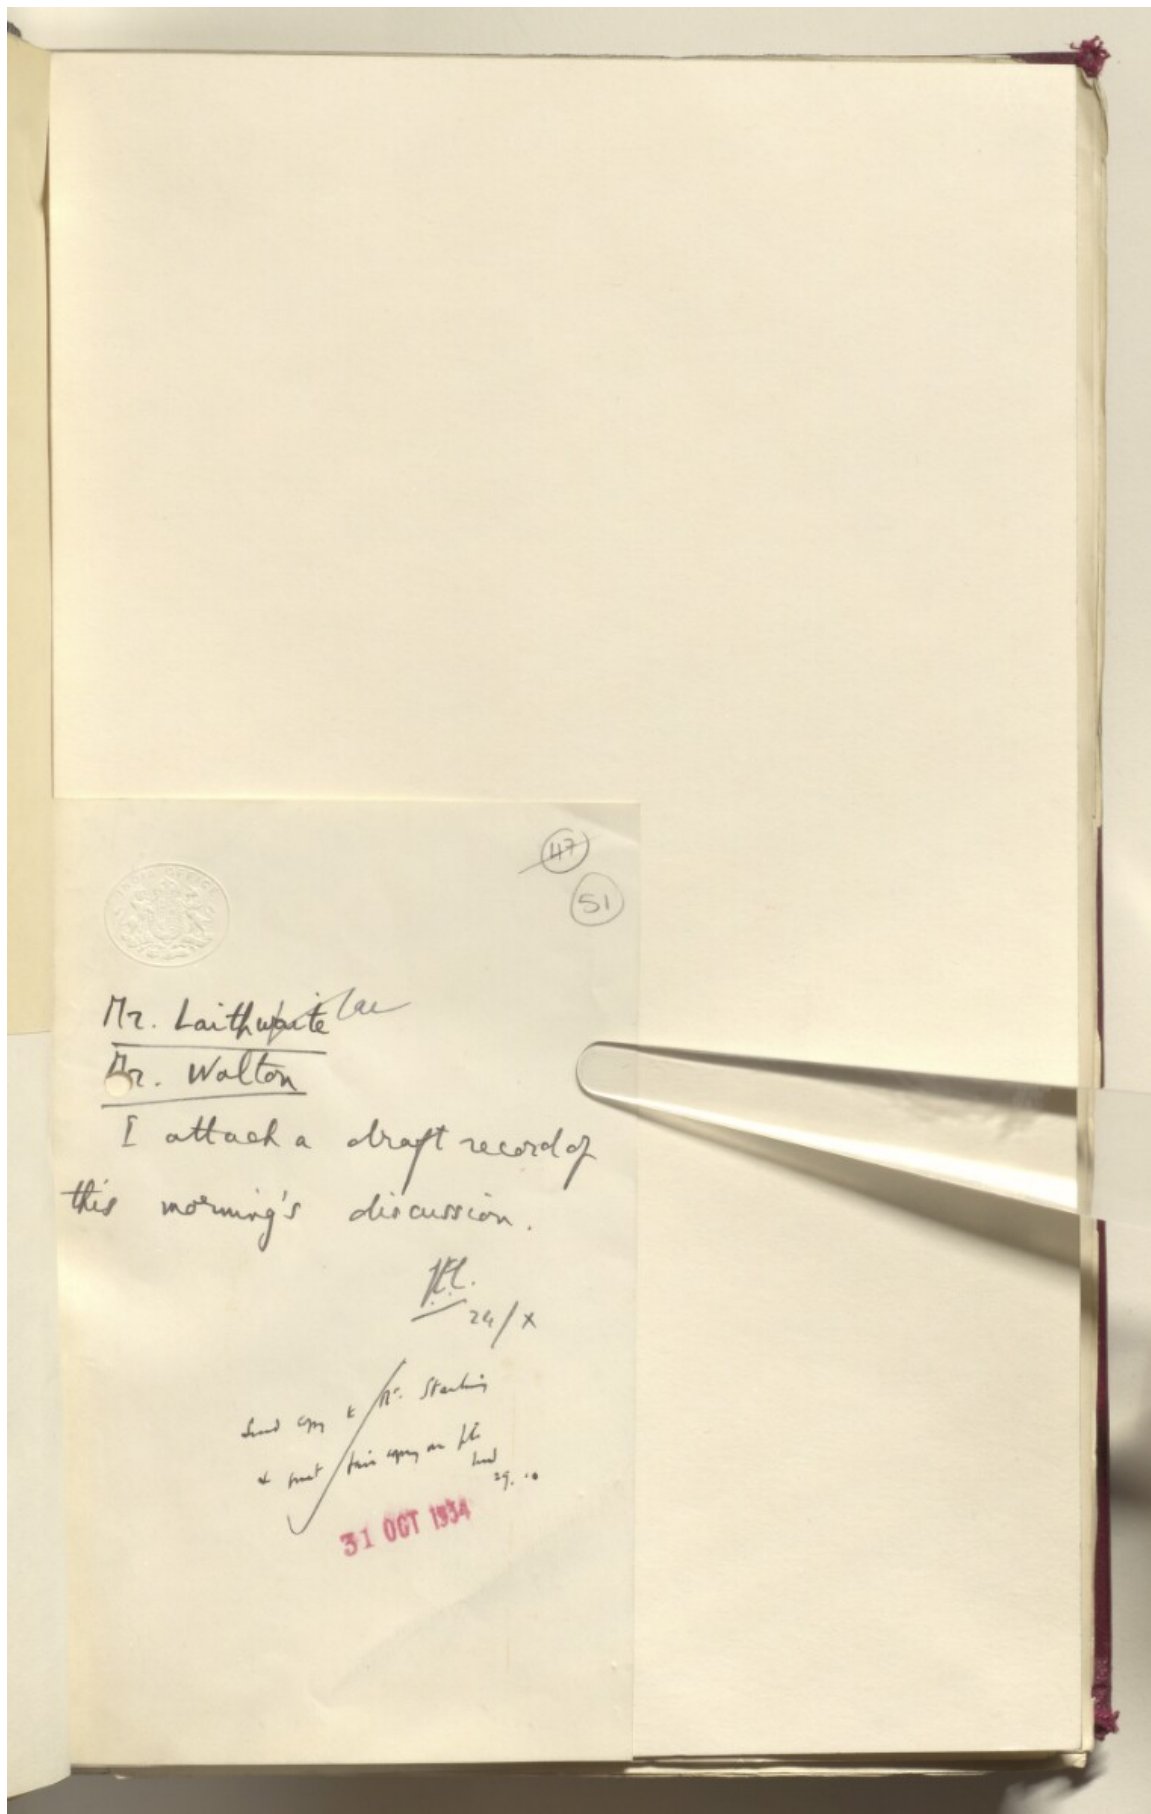 47
51
INDIA OFFICE
Mr. Laithwaite
Mr. Walton
I attach a draft record of
this morning's discussion.
24/X
Send copy to Mr. Starling
& put fair copy on file
29.10
31 OCT 1934